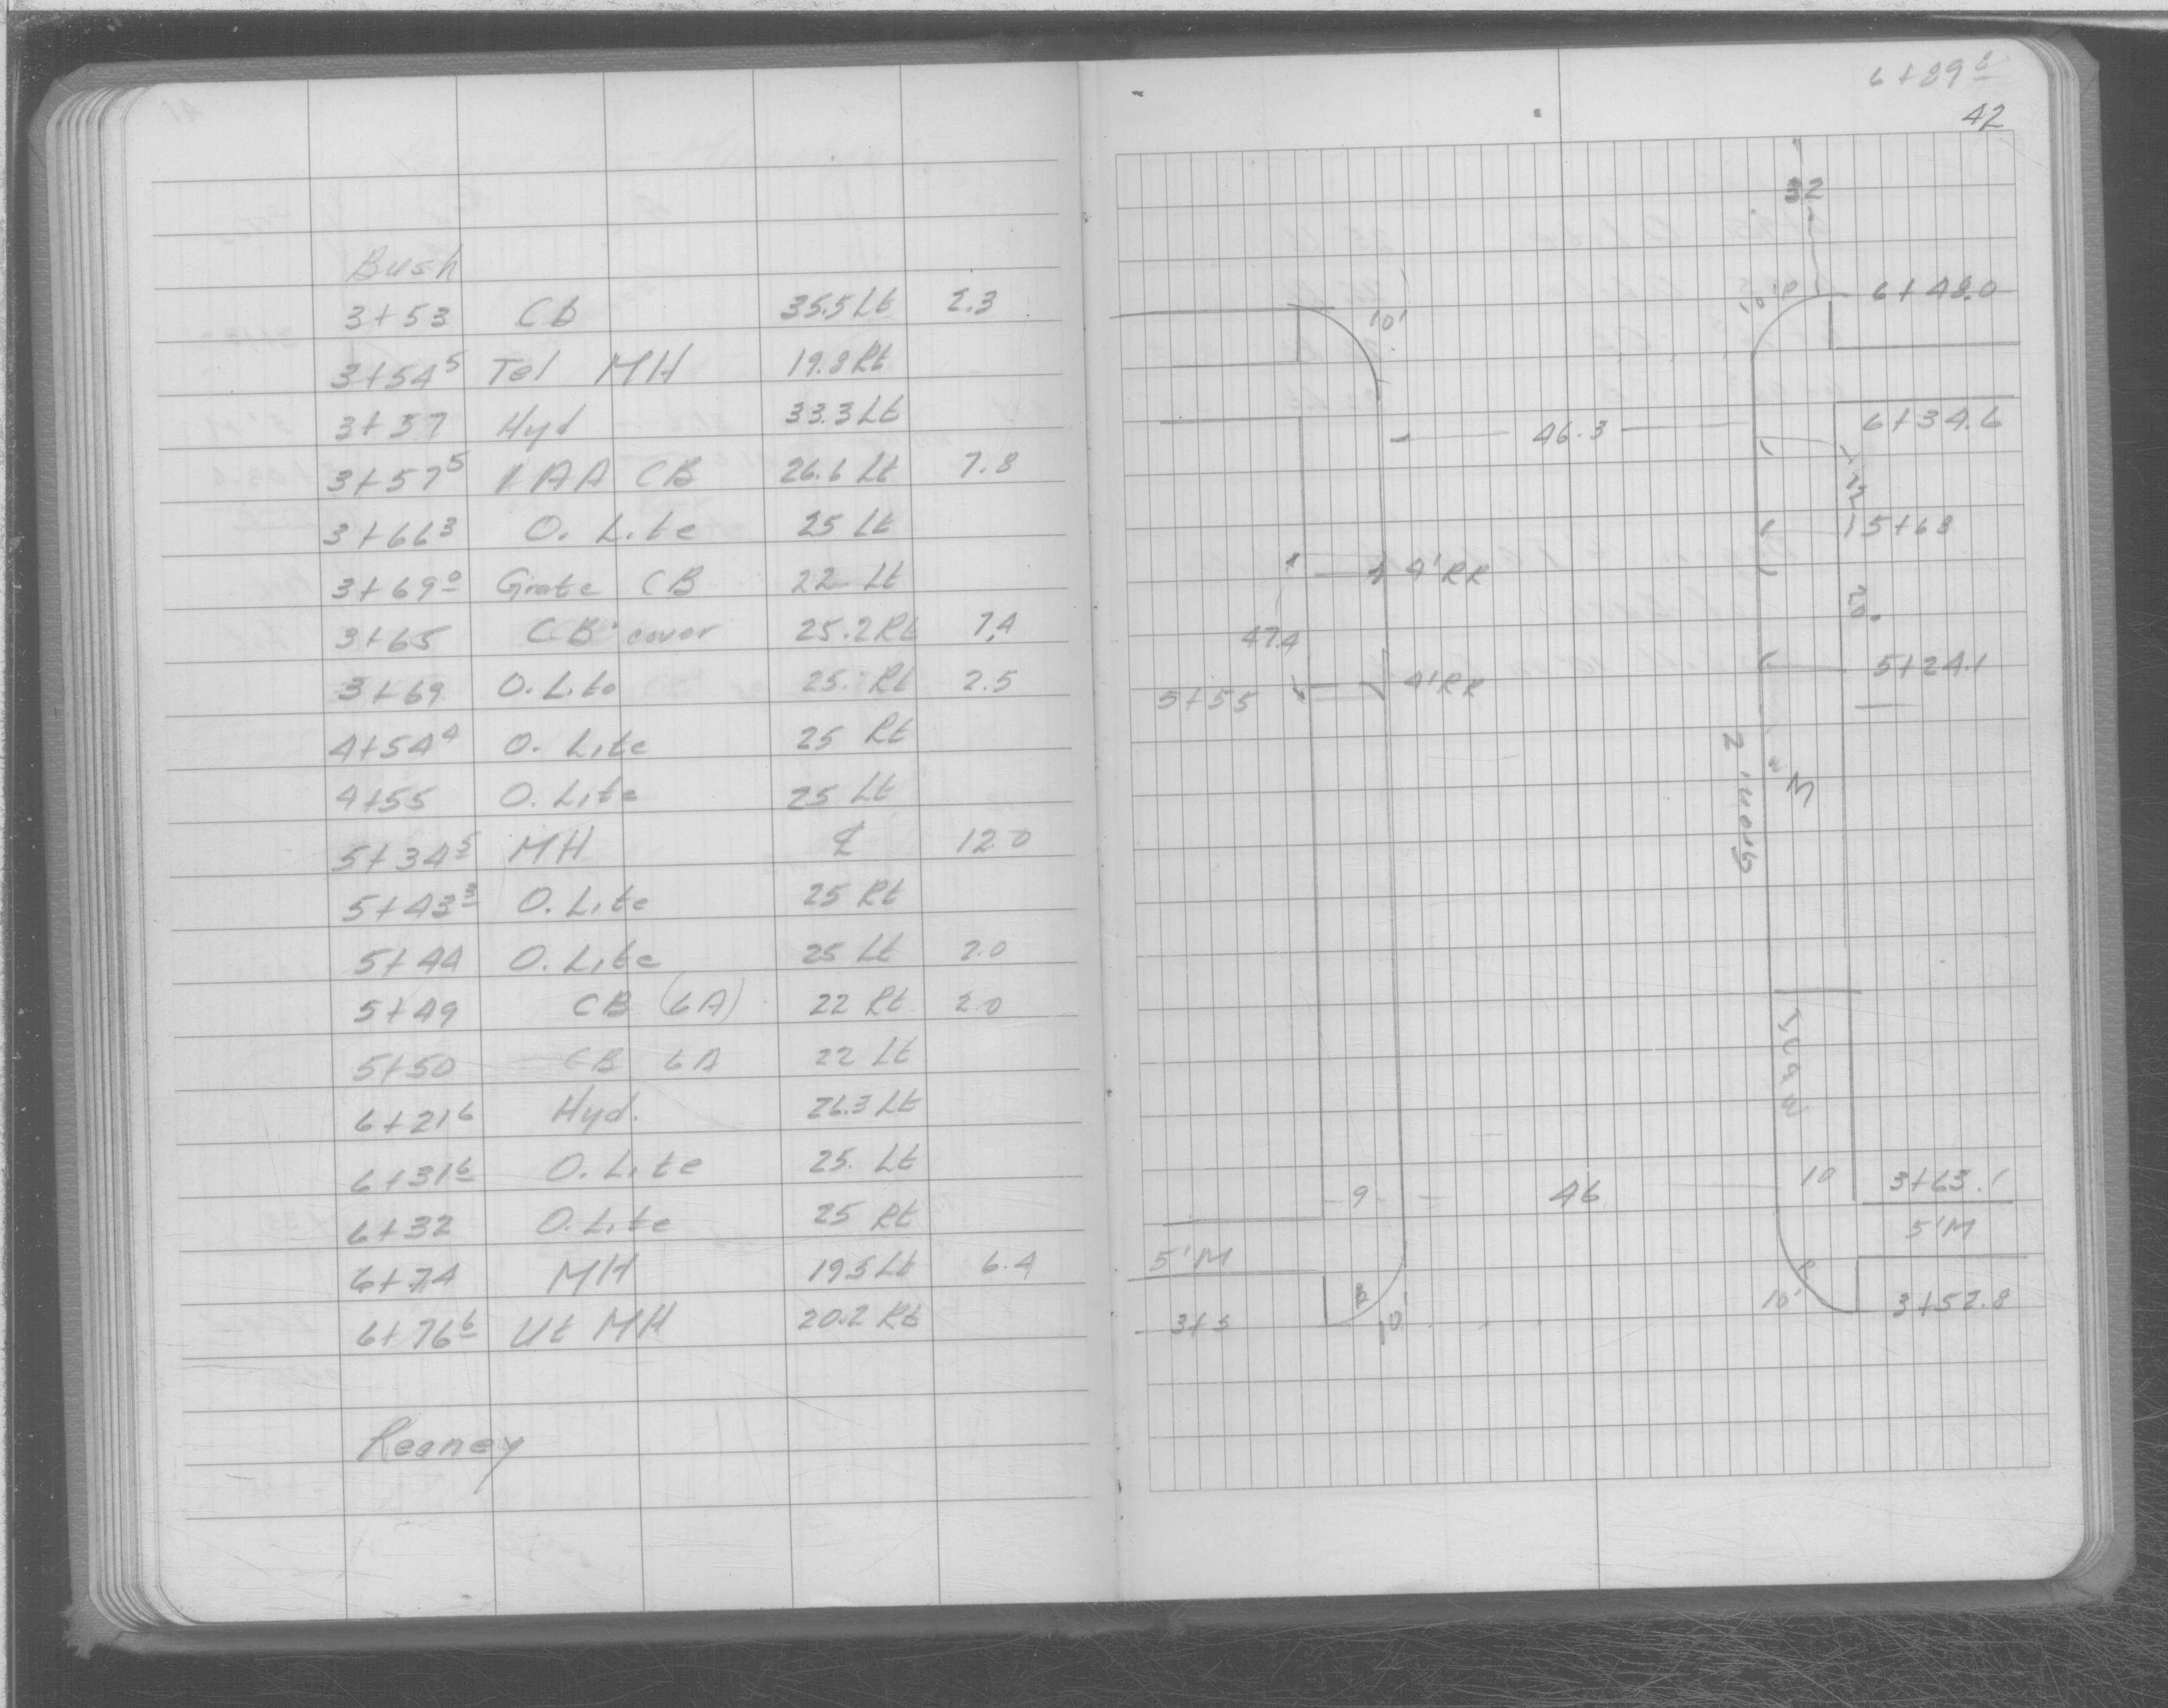 Bush
3+53 CB 35.5 Lt 2.3
3+54⁵ Tel MH 19.8 Rt
3+57 Hyd 33.3 Lt
3+57⁵ 1 AA CB 26.6 Lt 7.8
3+66³ O. Lite 25 Lt
3+69⁰ Grate CB 22 Lt
3+65 CB cover 25.2 Rt 7.4
3+69 O. Lite 25. Rt 2.5
4+54⁴ O. Lite 25 Rt
4+55 O. Lite 25 Lt
5+34⁵ MH ℄ 12.0
5+43³ O. Lite 25 Rt
5+44 O. Lite 25 Lt 2.0
5+49 CB (6A) 22 Rt 2.0
5+50 CB 6A 22 Lt
6+21⁶ Hyd. 26.3 Lt
6+31⁶ O. Lite 25. Lt
6+32 O. Lite 25 Rt
6+74 MH 19.5 Lt 6.4
6+76⁶ Ut MH 20.2 Rt
Reaney
6+89⁶
42
32
10' 10' 6+48.0
46.3 6+34.6
5+68
4'RR
47.4
5+24.1
5+55 4'RR
9 46 10 3+63.1
5'M 5'M
10' 3+52.8
10'